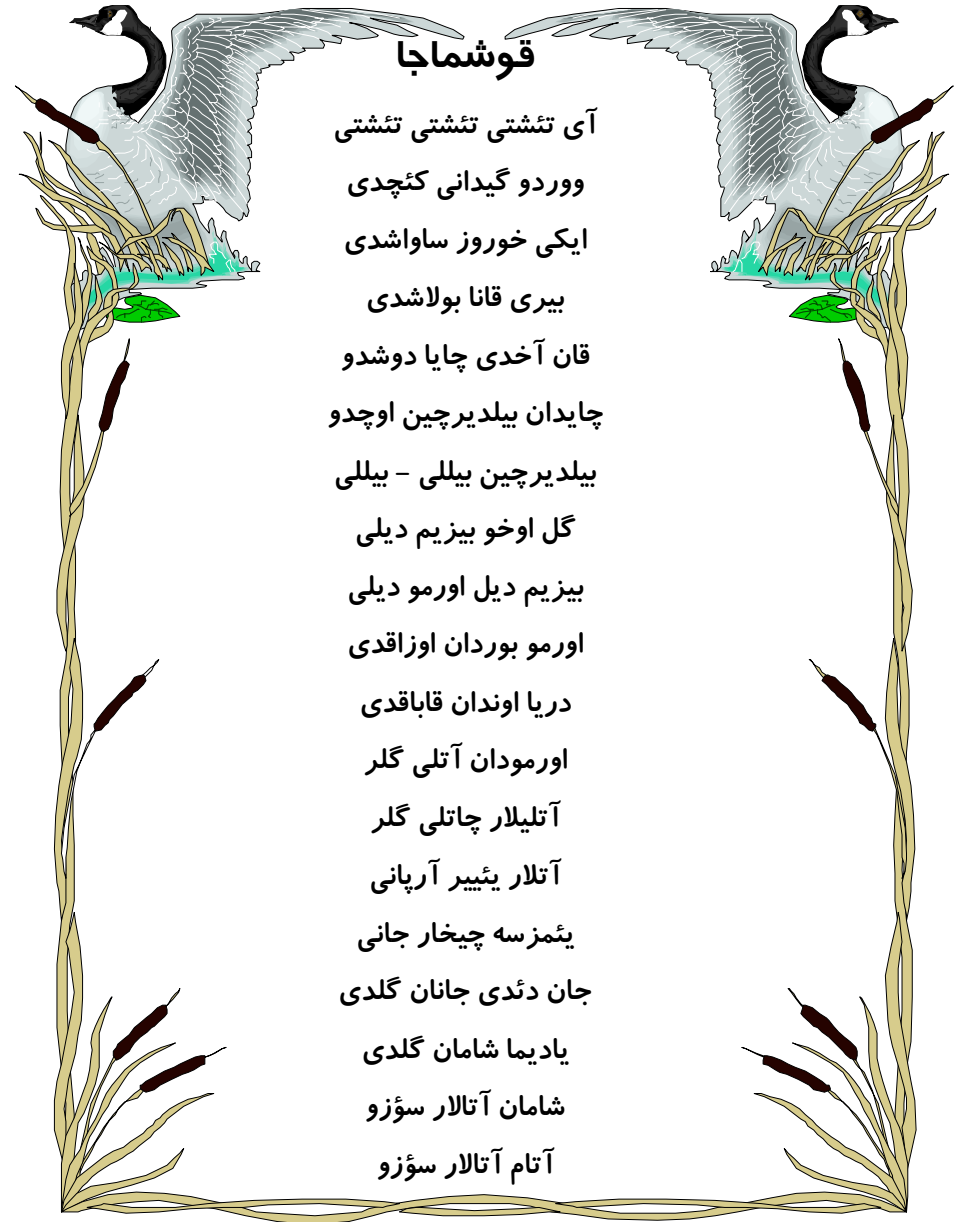 قوشماجا
آی تئشتی تئشتی تئشتی
ووردو گیدانی کئچدی
ایکی خوروز ساواشدی
بیری قانا بولاشدی
قان آخدی چایا دوشدو
چایدان بیلدیرچین اوچدو
بیلدیرچین بیللی – بیللی
گل اوخو بیزیم دیلی
بیزیم دیل اورمو دیلی
اورمو بوردان اوزاقدی
دریا اوندان قاباقدی
اورمودان آتلی گلر
آتلیلار چاتلی گلر
آتلار یئییر آرپانی
یئمزسه چیخار جانی
جان دئدی جانان گلدی
یادیما شامان گلدی
شامان آتالار سؤزو
آتام آتالار سؤزو